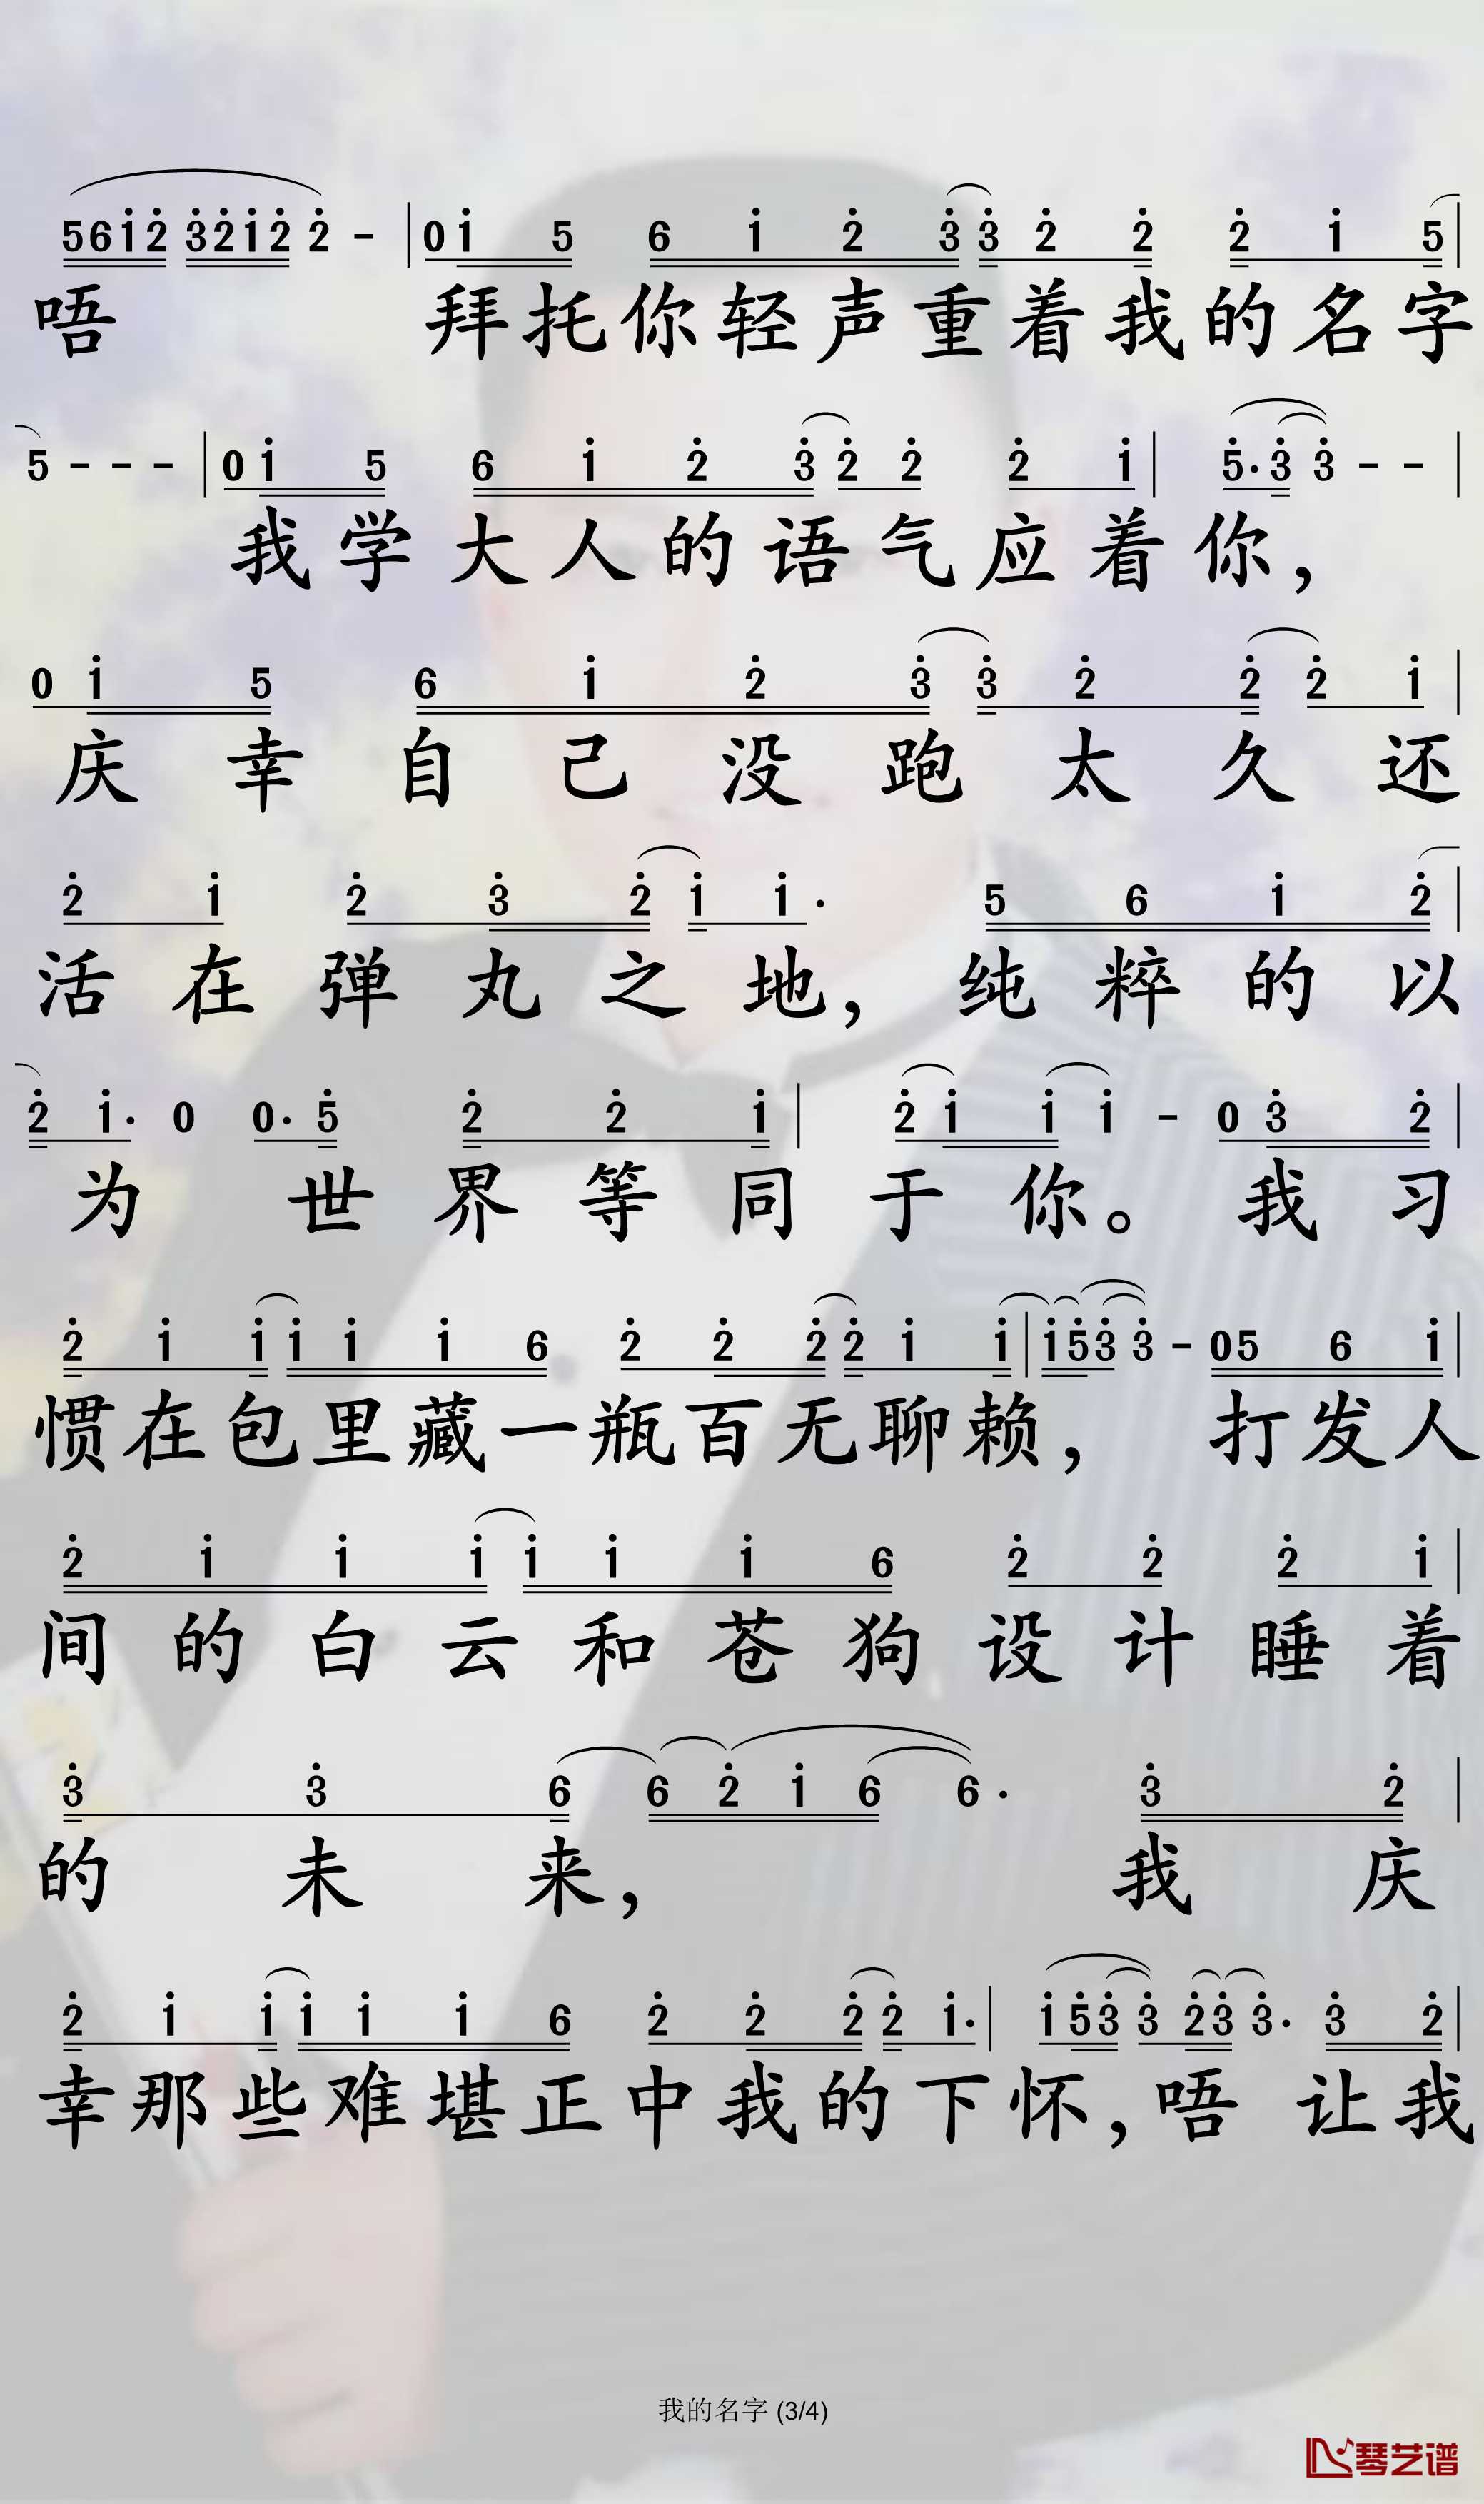 561̇2̇ 3̇2̇1̇2̇ 2̇ - | 01̇ 5 6 1̇ 2̇ 3̇ 3̇ 2̇ 2̇ 2̇ 1̇ 5 |
唔 拜托你轻声重着我的名字
5 - - - | 01̇ 5 6 1̇ 2̇ 3̇ 2̇ 2̇ 2̇ 1̇ | 5̇·3̇ 3̇ - - |
我学大人的语气应着你，
0 1̇ 5 6 1̇ 2̇ 3̇ 3̇ 2̇ 2̇ 2̇ 1̇ |
庆幸自己没跑太久还
2̇ 1̇ 2̇ 3̇ 2̇ 1̇ 1̇· 5 6 1̇ 2̇ |
活在弹丸之地，纯粹的以
2̇ 1̇· 0 0· 5̇ 2̇ 2̇ 1̇ | 2̇ 1̇ 1̇ 1̇ - 0 3̇ 2̇ |
为 世界等同于你。我习
2̇ 1̇ 1̇ 1̇ 1̇ 1̇ 6 2̇ 2̇ 2̇ 2̇ 1̇ 1̇ | 1̇5̇3̇ 3̇ - 05 6 1̇ |
惯在包里藏一瓶百无聊赖，打发人
2̇ 1̇ 1̇ 1̇ 1̇ 1̇ 1̇ 6 2̇ 2̇ 2̇ 1̇ |
间的白云和苍狗设计睡着
3̇ 3̇ 6 6 2̇ 1̇ 6 6· 3̇ 2̇ |
的未来，我庆
2̇ 1̇ 1̇ 1̇ 1̇ 1̇ 6 2̇ 2̇ 2̇ 2̇ 1̇· | 1̇5̇3̇ 3̇ 2̇3̇ 3̇· 3̇ 2̇ |
幸那些难堪正中我的下怀，唔 让我
我的名字 (3/4)
琴艺谱